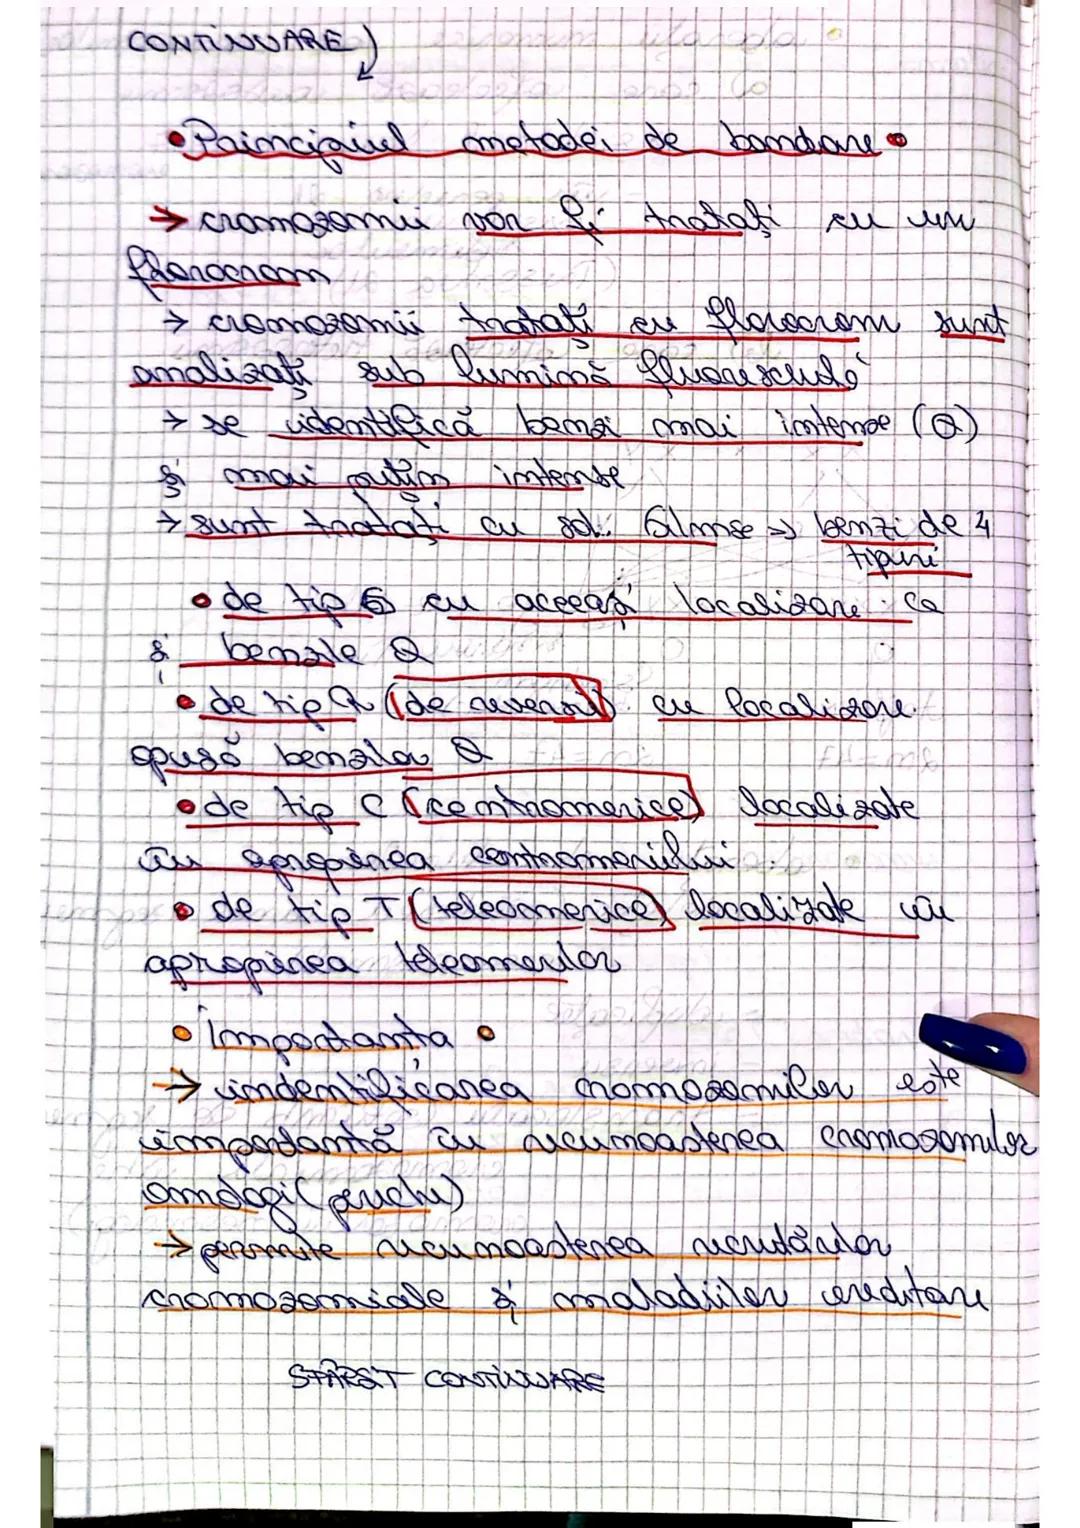 CONTINUARE
• Principiul metodei de bandare •
→ cromozomii vor fi tratați cu un
florocrom
→ cromozomii tratați cu florocrom sunt
analizați sub lumină fluorescentă
→ se identifică benzi mai intense (Q)
și mai puțin intense
→ sunt tratați cu sol. Gimse => benzi de 4
tipuri
• de tip G cu aceeași localizare ca
și benzile Q
• de tip R (de revensit) cu localizare
opusă benzilor Q
• de tip C (centromerice) localizate
în apropierea centromerului.
• de tip T (teleomerice) localizate în
apropierea teleomerilor
• Importanta •
→ indentificarea cromozomilor este
importantă în recunoasterea cromozomilor
omologi (pereche)
→ permite recunoasterea
cromozomiale și maladiilor ereditare
CONTINUARE